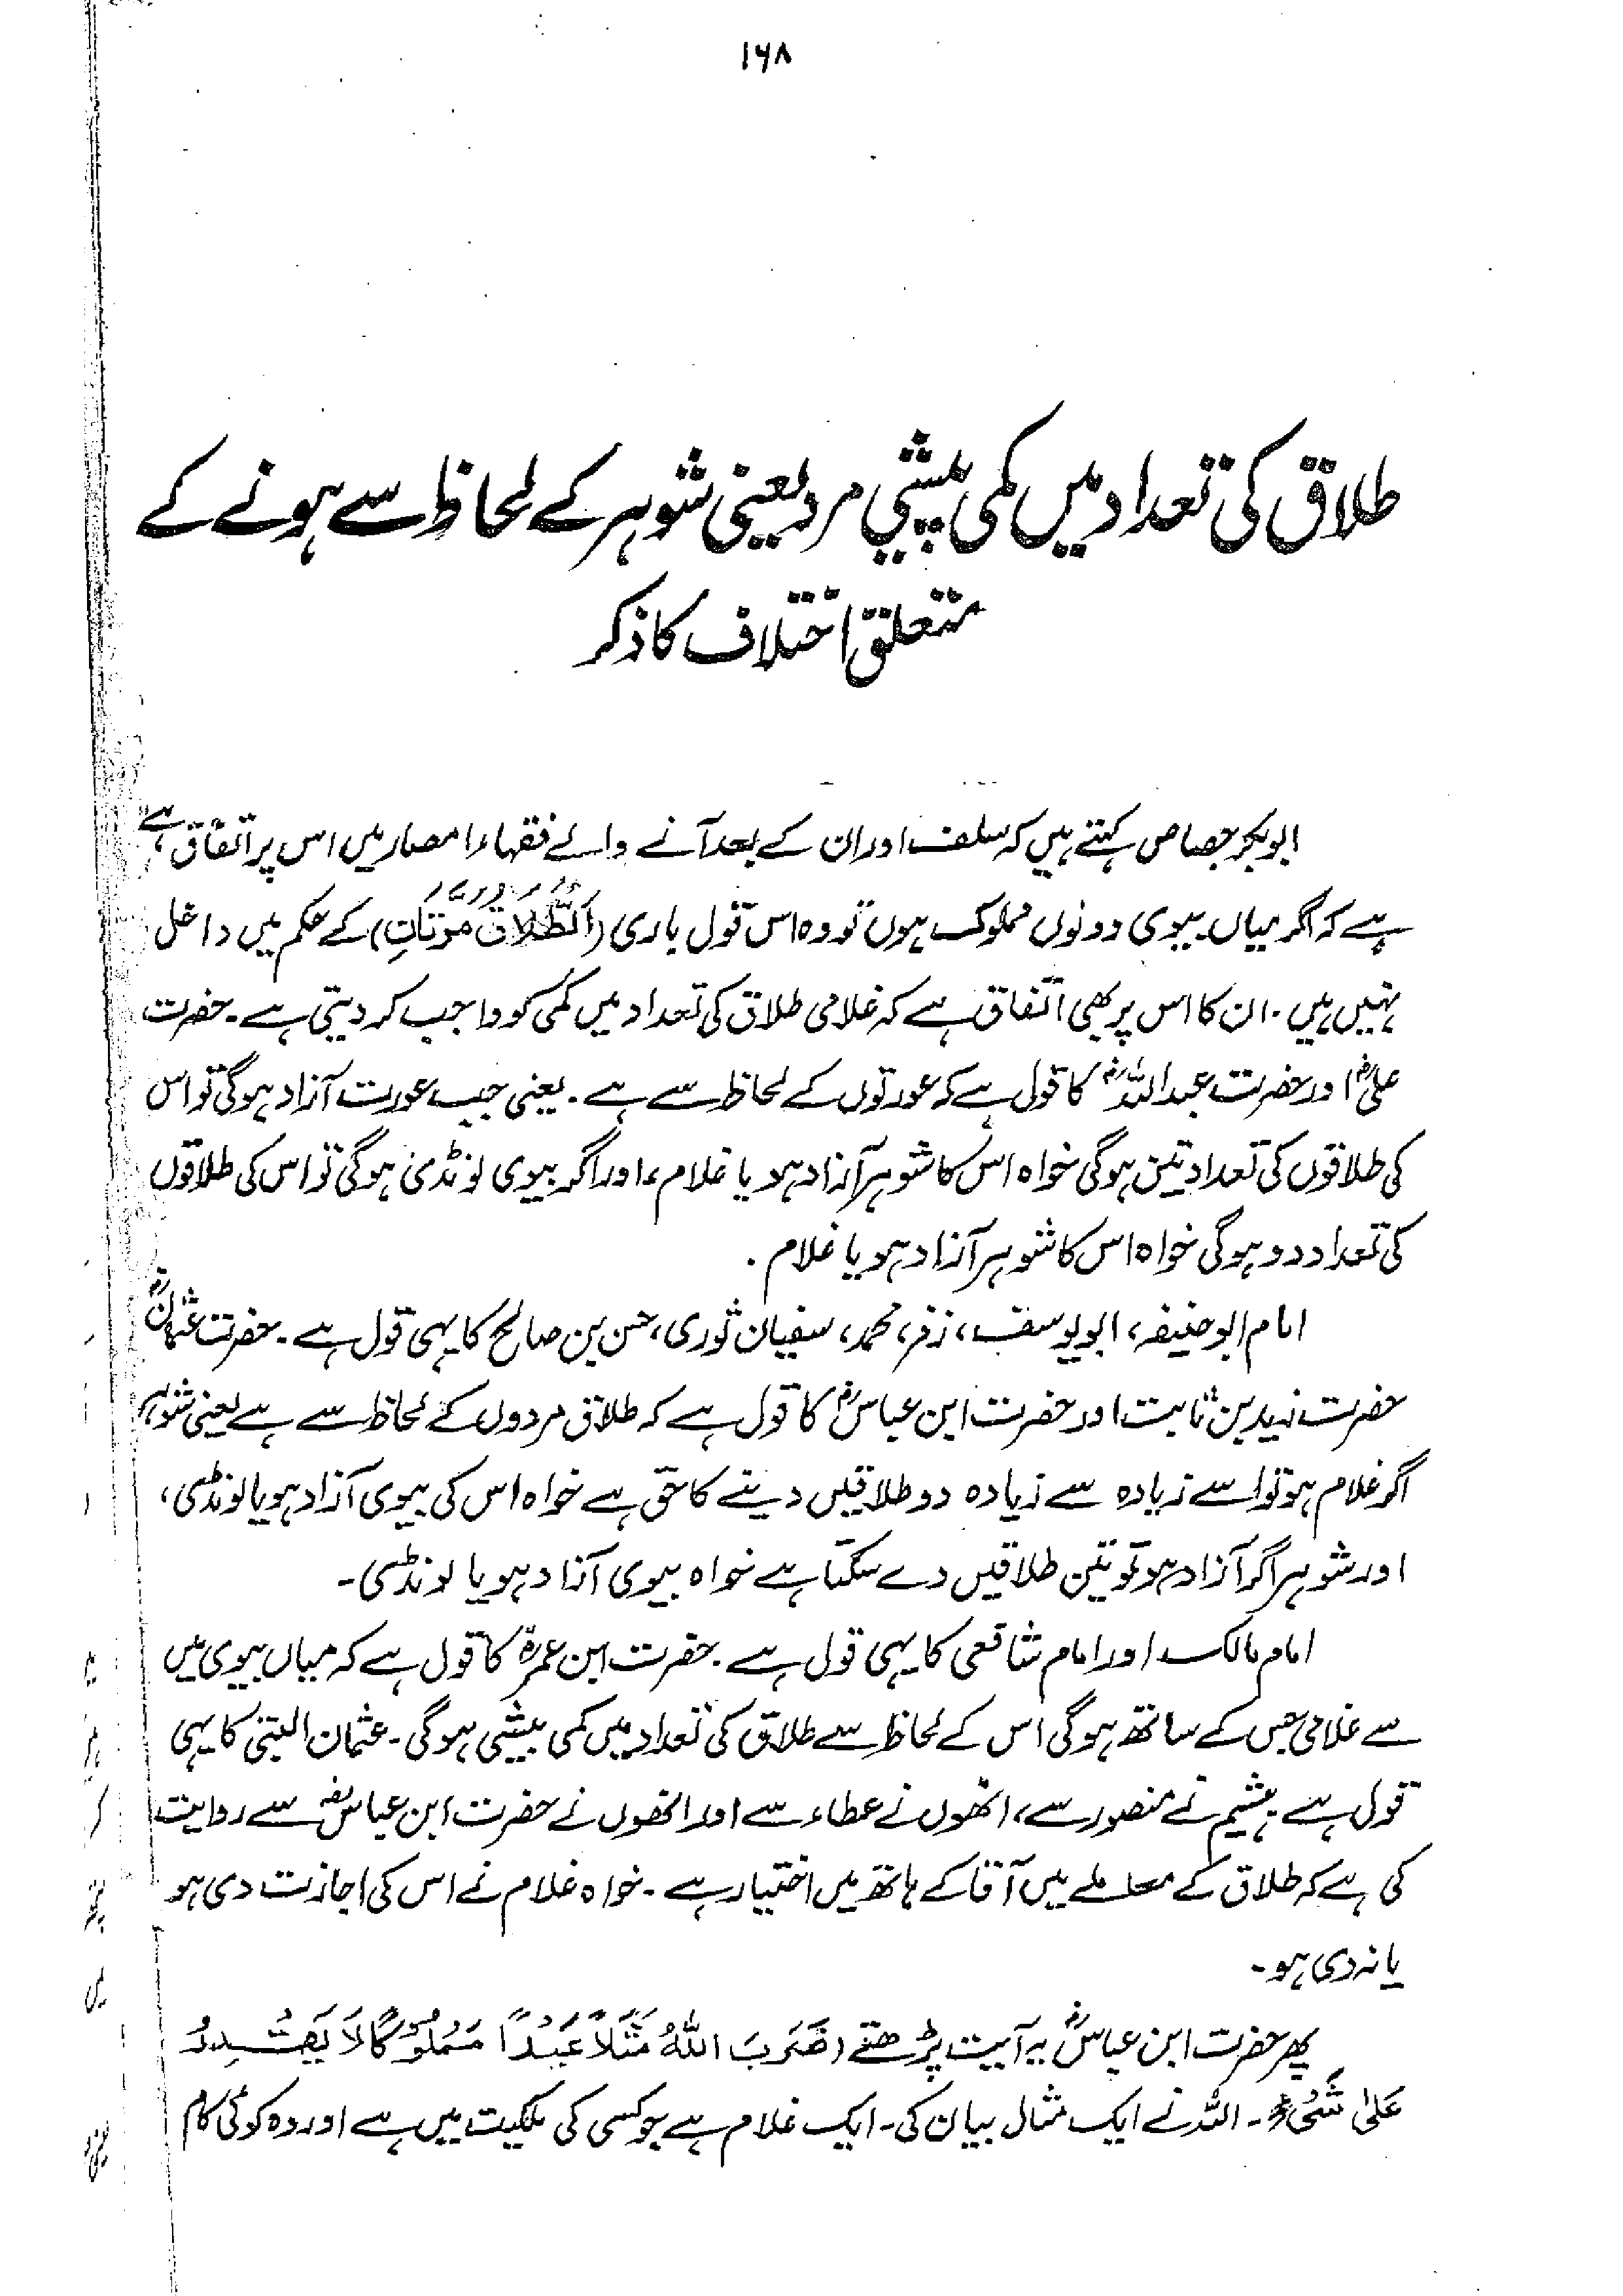 ۱۶۸
طلاق کی تعداد میں کمی بیشی مرد یعنی شوہر کے لحاظ سے ہونے کے
متعلق اختلاف کا ذکر
ابوبکر جصاص کہتے ہیں کہ سلف اور ان کے بعد آنے والے فقہاء امصار میں اس پر اتفاق ہے
ہے کہ اگر میاں بیوی دونوں مملوک ہوں تو وہ اس قول باری (اَلطَّلَاقُ مَرَّتَانِ) کے حکم میں داخل
نہیں ہیں۔ ان کا اس پر بھی اتفاق ہے کہ غلامی طلاق کی تعداد میں کمی کو واجب کر دیتی ہے۔ حضرت
علیؓ اور حضرت عبداللہؓ کا قول ہے کہ عورتوں کے لحاظ سے ہے۔ یعنی جب عورت آزاد ہوگی تو اس
کی طلاقوں کی تعداد تین ہوگی خواہ اس کا شوہر آزاد ہو یا غلام، اور اگر بیوی لونڈی ہوگی تو اس کی طلاقوں
کی تعداد دو ہوگی خواہ اس کا شوہر آزاد ہو یا غلام۔
امام ابوحنیفہ، ابویوسف، زفر، محمد، سفیان ثوری، حسن بن صالح کا یہی قول ہے۔ حضرت عثمانؓ
حضرت زید بن ثابت اور حضرت ابن عباسؓ کا قول ہے کہ طلاق مردوں کے لحاظ سے ہے یعنی شوہر
اگر غلام ہو تو اسے زیادہ سے زیادہ دو طلاقیں دینے کا حق ہے خواہ اس کی بیوی آزاد ہو یا لونڈی،
اور شوہر اگر آزاد ہو تو تین طلاقیں دے سکتا ہے خواہ بیوی آزاد ہو یا لونڈی۔
امام مالک اور امام شافعی کا یہی قول ہے۔ حضرت ابن عمرؓ کا قول ہے کہ میاں بیوی میں
سے غلامی جس کے ساتھ ہوگی اس کے لحاظ سے طلاق کی تعداد میں کمی بیشی ہوگی۔ عثمان البتی کا یہی
قول ہے ہشیم نے منصور سے، انھوں نے عطاء سے اور انھوں نے حضرت ابن عباسؓ سے روایت
کی ہے کہ طلاق کے معاملے میں آقا کے ہاتھ میں اختیار ہے۔ خواہ غلام نے اس کی اجازت دی ہو
یا نہ دی ہو۔
پھر حضرت ابن عباسؓ یہ آیت پڑھتے (ضَرَبَ اللّٰہُ مَثَلًا عَبْدًا مَمْلُوْکًا لَا یَقْدِرُ
عَلیٰ شَیْءٍ۔ اللہ نے ایک مثال بیان کی۔ ایک غلام ہے جو کسی کی ملکیت میں ہے اور وہ کوئی کام